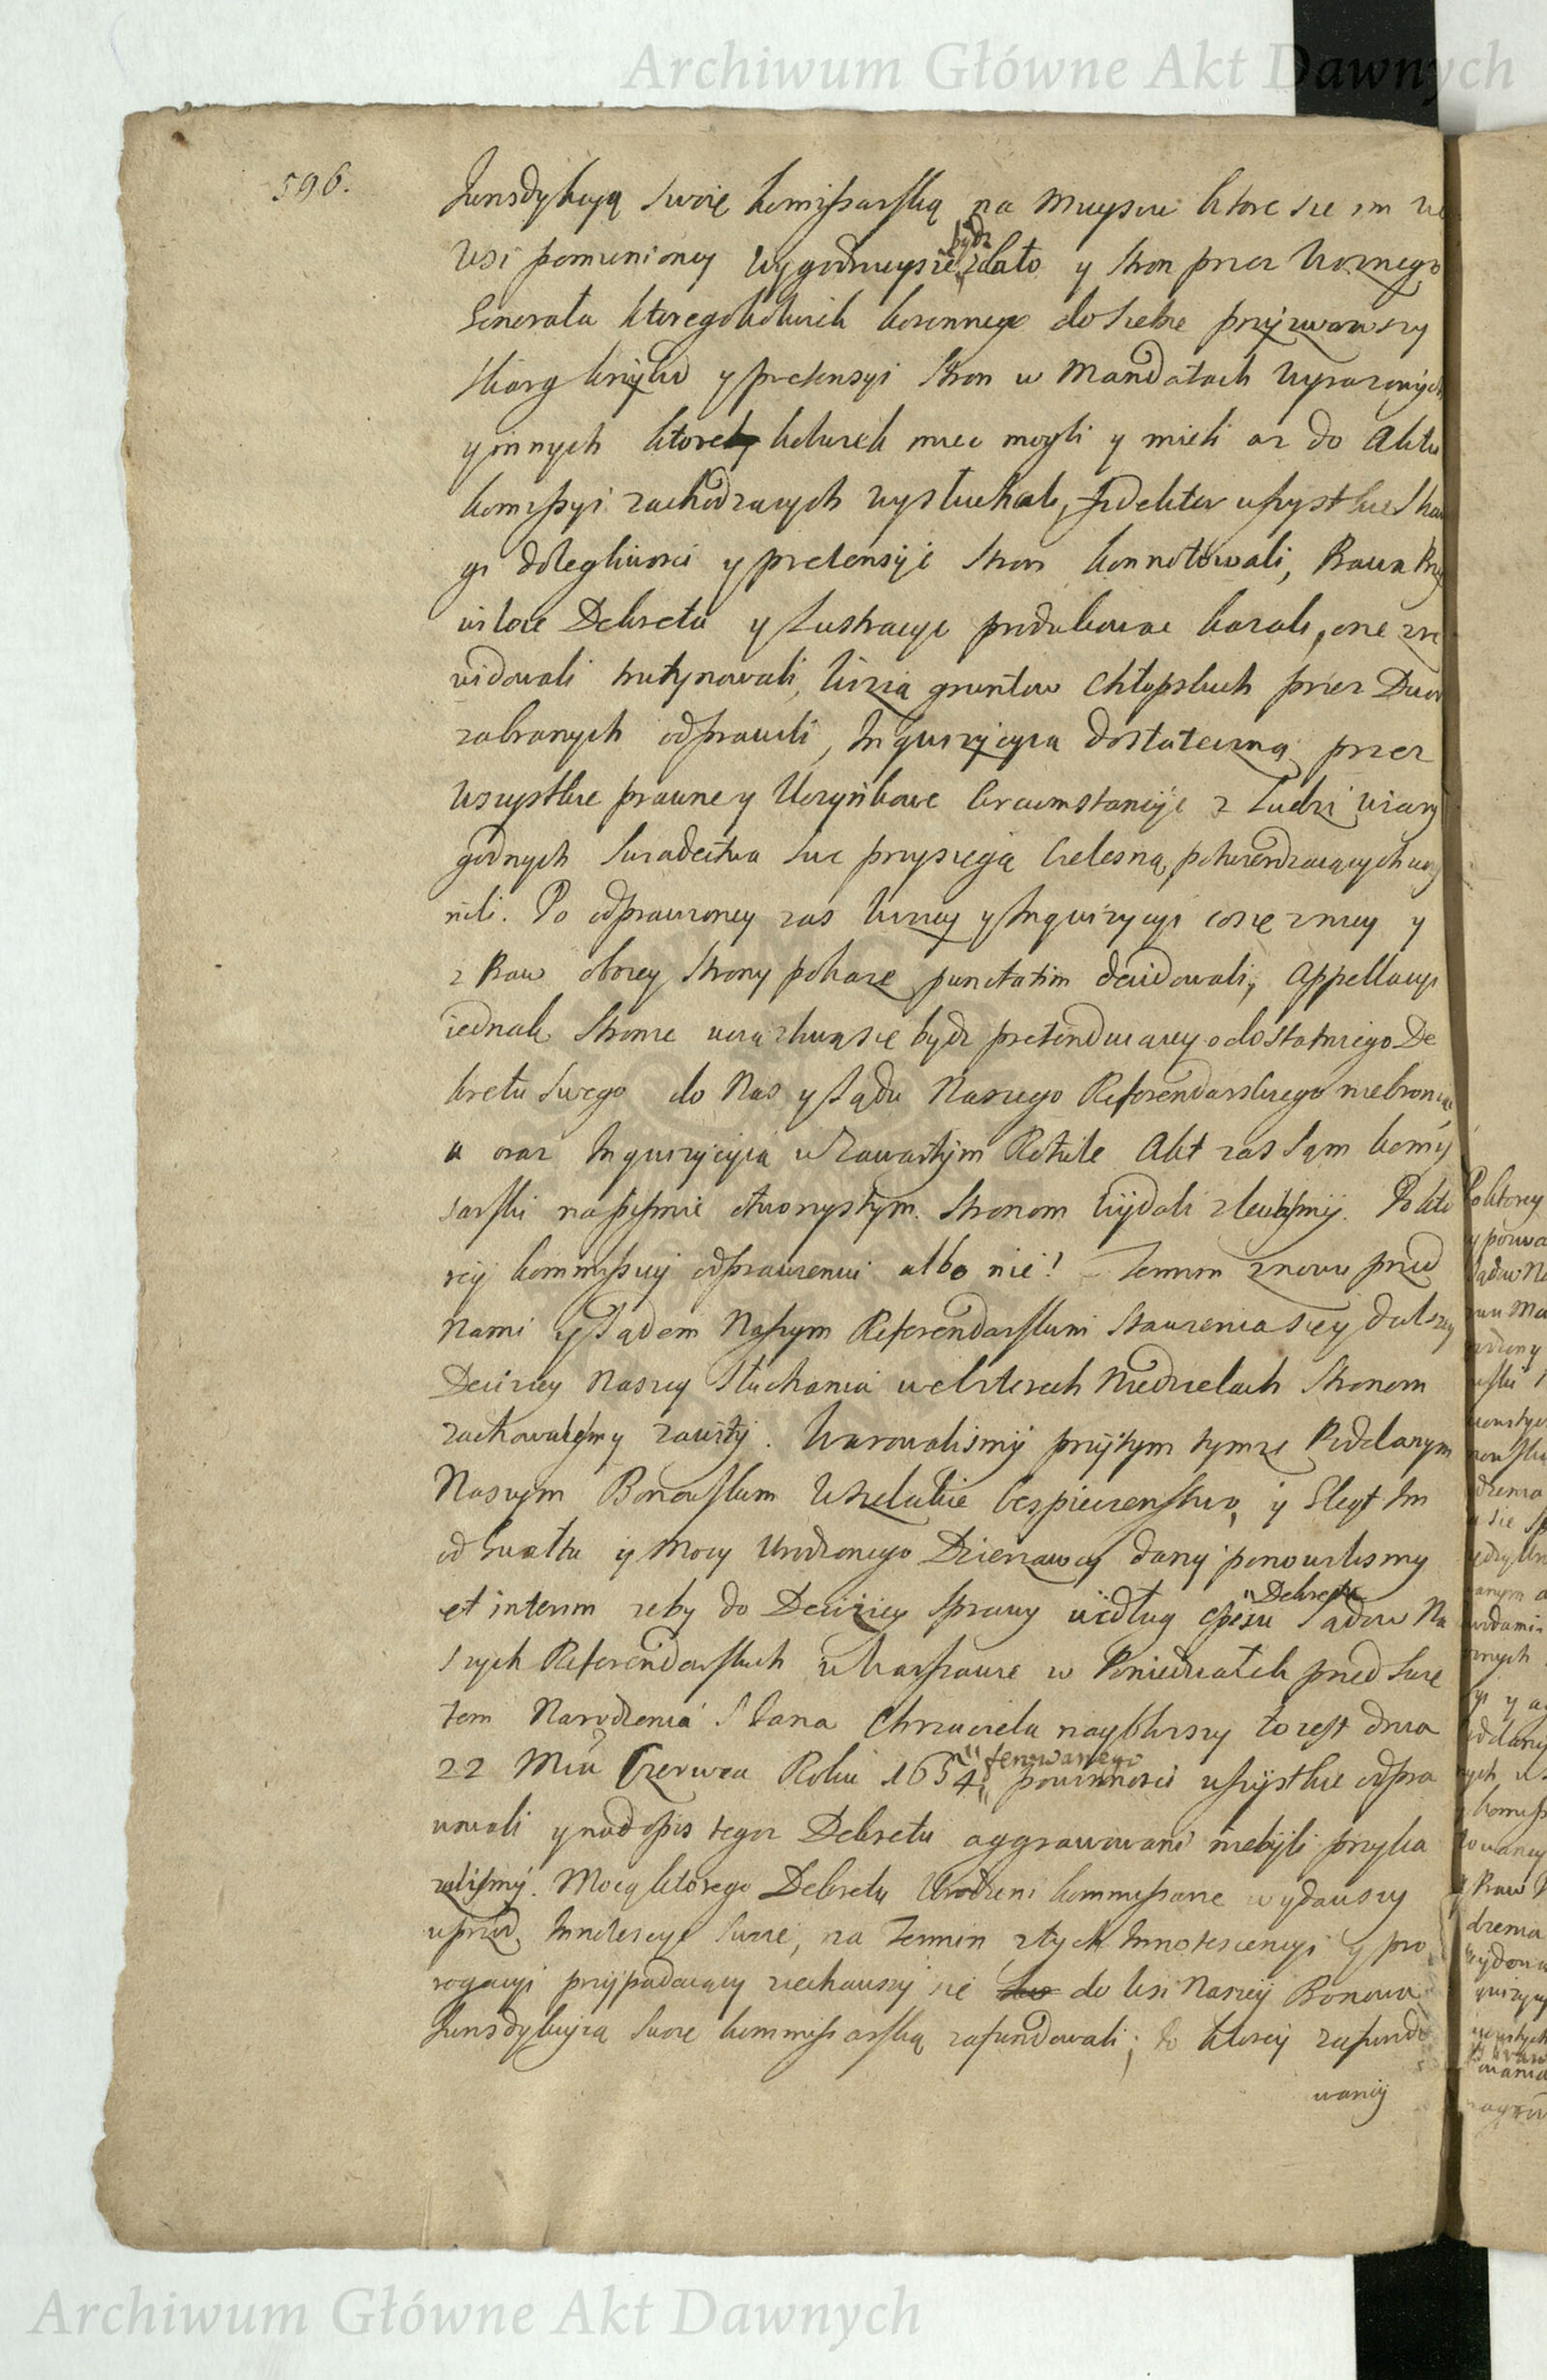 Archiwum Główne Akt Dawnych
596.
Jurisdykcyą swoię komissarską na mieyscu ktore sie im we
wsi pomienioney wygodnieysze bydz zdało y stron przez woznego
Generała ktoregokolwiek koronnego do siebie przyzwawszy
skarg krzywd y pretensyi stron w Mandatach wyrazonych
y innych ktorekolwiek miec mogli y mieli az do Aktu
komissyi zachodzących wysłuchali, fideliter wszystkie skar
gi dolegliwosci y pretensyie stron konnotowali, Prawa Przy
wileie Dekreta y Lustracye produkowac kazali, one zre
widowali trutynowali, wizią gruntow chłopskich przez Dwor
zabranych odprawili, Inquizycyia dostateczną przez
wszystkie prawne y uczynkowe circumstancyie z ludzi wiary
godnych swiadectwa swe przysięgą cielesną potwierdzaiących uczy
nili. Po odprawioney zas wiziey y Inquizycyi co się z niey y
z Praw oboiey strony pokaze punctatim decidowali, Appellacyi
iednak stronie uciązliwą sie bydz pretenduiącey od ostatniego De
kretu swego do Nas y Sądu Naszego Referendarskiego niebroniąc
a oraz Inquizycyia w zawartym Rotule Akt zas sam komis
sarski na pismie otworzystym stronom wydali zlecilismy. Po kto
rey kommissyi odprawieniu albo nie! Termin znowu przed
Nami y Sądem Naszym Referendarskim stawienia się y dalszey
Deciziey Naszey słuchania we czterech Niedzielach stronom
zachowalismy zawity. Warowalismy przytym tymze Poddanym
Naszym Bonowskim wszelakie bespieczenstwo, y Gleyt Im
od Gwałtu y Mocy Urodzonego Dzierzawcy dany ponowilismy
et interim zeby do Decizyey sprawy według opisu Dekretu Sądow Na
szych Referendarskich w Warszawie w Poniedziałek przed Swię
tem Narodzenia S Jana Chrzciciela nayblizszy to iest dnia
22 Mca Czerwca Roku 1654 ferowanego powinnosci wszystkie odpra
wowali y nad opis tegoz Dekretu aggrawowani niebyli przyka
zalismy. Mocą ktorego Dekretu Urodzeni kommissarze wydawszy
wprzod Innotescye swoie, na Termin z tych Innotescencyi y pro
rogacyi przypadaiący ziechawszy się do wsi Naszey Bonowa
Jurisdykcyią swoie kommissarską zafundowali; po ktorey zafundo
waniy
Archiwum Główne Akt Dawnych